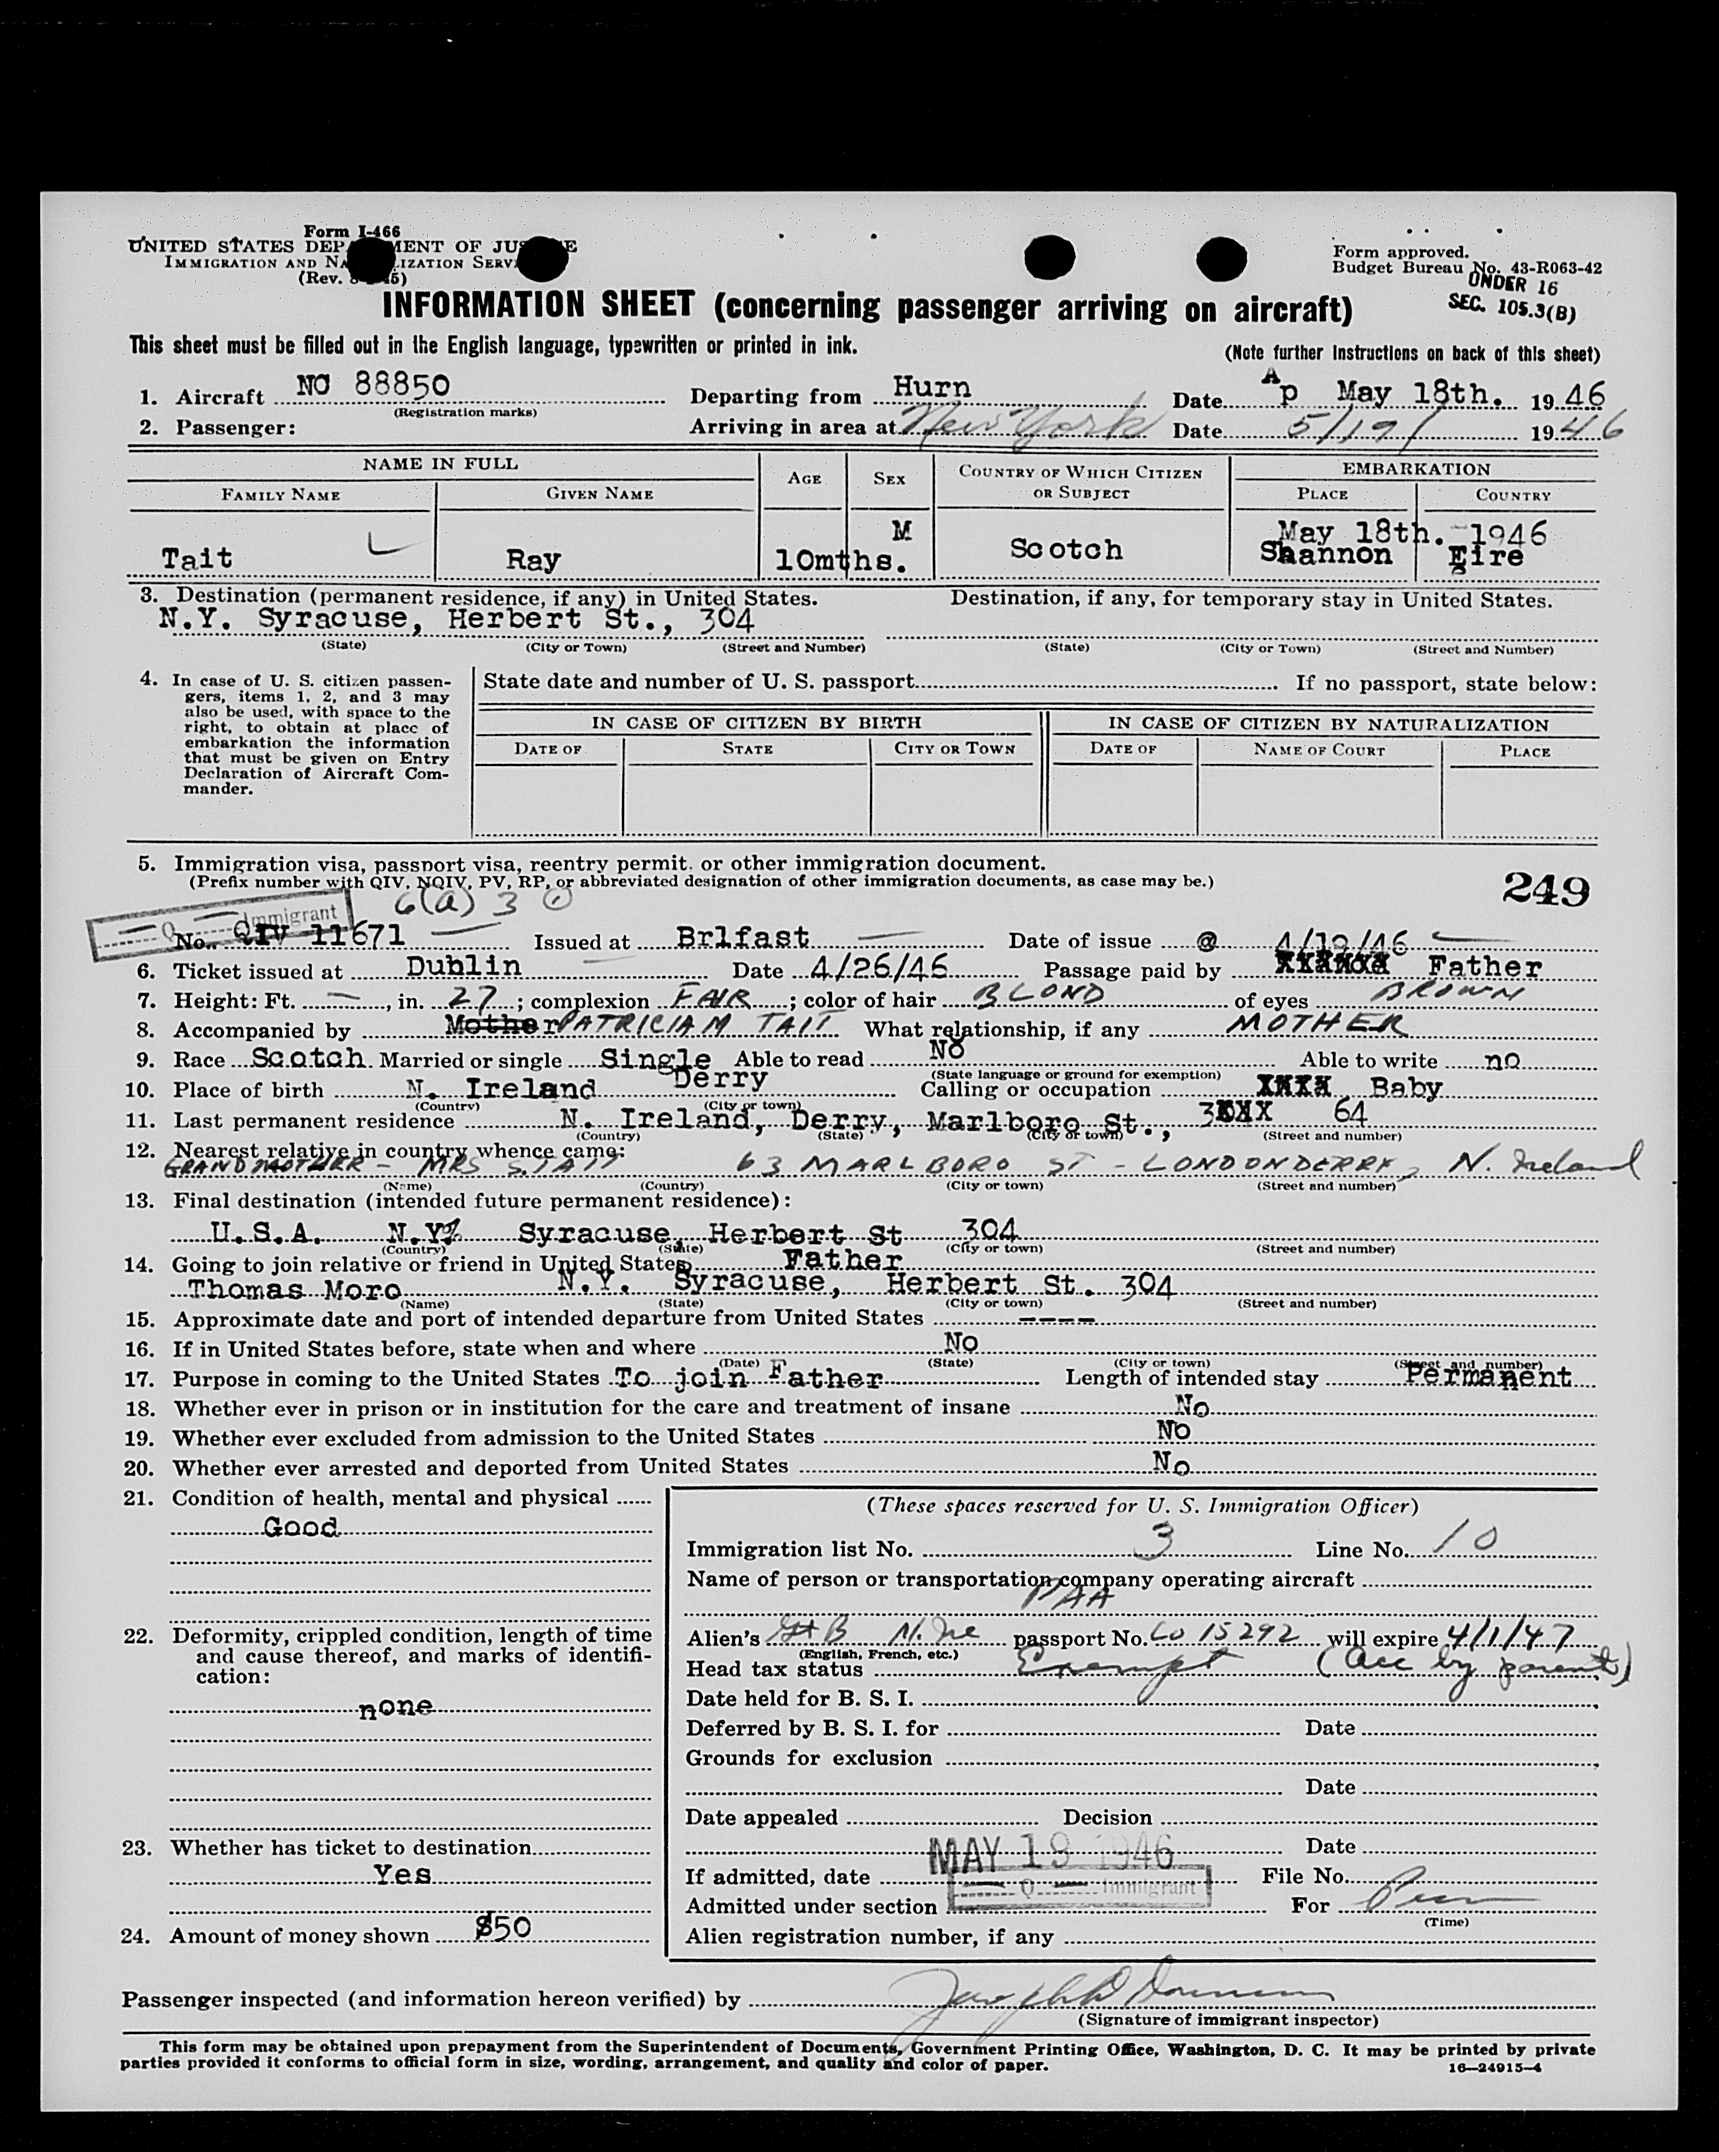 Form I-466
UNITED STATES DEP MENT OF JUS E
IMMIGRATION AND NA IZATION SERV
(Rev. 45)
Form approved.
Budget Bureau No. 43-R063-42
UNDER 16
SEC. 105.3(B)
INFORMATION SHEET (concerning passenger arriving on aircraft)
This sheet must be filled out in the English language, typewritten or printed in ink.
(Note further Instructions on back of this sheet)
1. Aircraft NO 88850 Departing from Hurn Date Ap May 18th. 1946
(Registration marks)
2. Passenger: Arriving in area at New York Date 5/19/ 1946
NAME IN FULL AGE SEX COUNTRY OF WHICH CITIZEN OR SUBJECT EMBARKATION
FAMILY NAME GIVEN NAME PLACE COUNTRY
M May 18th. 1946
Tait Ray 10mths. Scotch Shannon Eire
3. Destination (permanent residence, if any) in United States. Destination, if any, for temporary stay in United States.
N.Y. Syracuse, Herbert St., 304
(State) (City or Town) (Street and Number) (State) (City or Town) (Street and Number)
4. In case of U. S. citizen passen-
gers, items 1, 2, and 3 may
also be used, with space to the
right, to obtain at place of
embarkation the information
that must be given on Entry
Declaration of Aircraft Com-
mander.
State date and number of U. S. passport If no passport, state below:
IN CASE OF CITIZEN BY BIRTH IN CASE OF CITIZEN BY NATURALIZATION
DATE OF STATE CITY OR TOWN DATE OF NAME OF COURT PLACE
5. Immigration visa, passport visa, reentry permit, or other immigration document.
(Prefix number with QIV, NQIV, PV, RP, or abbreviated designation of other immigration documents, as case may be.)
249
6(a) 3
Q Immigrant
No. QIV 11671 Issued at Brlfast Date of issue @ 4/19/46
6. Ticket issued at Dublin Date 4/26/46 Passage paid by Father
7. Height: Ft. —, in. 27; complexion FAIR; color of hair BLOND of eyes BROWN
8. Accompanied by Mother PATRICIA M TAIT What relationship, if any MOTHER
9. Race Scotch Married or single Single Able to read No Able to write no
(State language or ground for exemption)
10. Place of birth N. Ireland Derry Calling or occupation Baby
(Country) (City or town)
11. Last permanent residence N. Ireland, Derry, Marlboro St., 64
(Country) (State) (City or town) (Street and number)
12. Nearest relative in country whence came:
GRANDMOTHER - MRS S. TAIT 63 MARLBORO ST - LONDONDERRY, N. Ireland
(Name) (Country) (City or town) (Street and number)
13. Final destination (intended future permanent residence):
U.S.A. N.Y. Syracuse, Herbert St 304
(Country) (State) (City or town) (Street and number)
14. Going to join relative or friend in United States Father
Thomas Moro N.Y. Syracuse, Herbert St. 304
(Name) (State) (City or town) (Street and number)
15. Approximate date and port of intended departure from United States ----
16. If in United States before, state when and where No
(Date) (State) (City or town) (Street and number)
17. Purpose in coming to the United States To join Father Length of intended stay Permanent
18. Whether ever in prison or in institution for the care and treatment of insane No
19. Whether ever excluded from admission to the United States No
20. Whether ever arrested and deported from United States No
21. Condition of health, mental and physical
Good
22. Deformity, crippled condition, length of time
and cause thereof, and marks of identifi-
cation:
none
23. Whether has ticket to destination
Yes
24. Amount of money shown $50
(These spaces reserved for U. S. Immigration Officer)
Immigration list No. 3 Line No. 10
Name of person or transportation company operating aircraft
PAA
Alien's Gt B N. Ire passport No. Co 15292 will expire 4/1/47
(English, French, etc.)
Head tax status Exempt (Acc by parents)
Date held for B. S. I.
Deferred by B. S. I. for Date
Grounds for exclusion
Date
Date appealed Decision
Date
If admitted, date MAY 19 1946 File No.
Admitted under section Q Immigrant For
(Time)
Alien registration number, if any
Passenger inspected (and information hereon verified) by
(Signature of immigrant inspector)
This form may be obtained upon prepayment from the Superintendent of Documents, Government Printing Office, Washington, D. C. It may be printed by private
parties provided it conforms to official form in size, wording, arrangement, and quality and color of paper.
16—24915-4